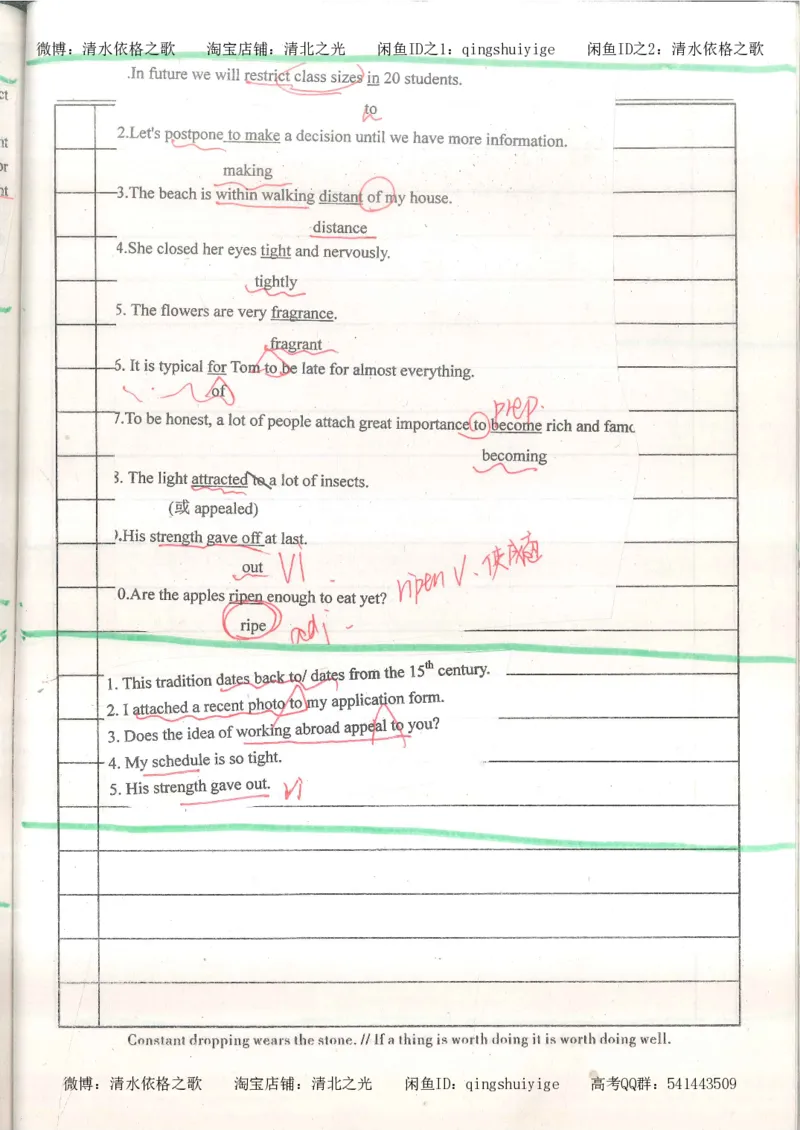 微博：清水依格之歌 淘宝店铺：清北之光 闲鱼ID之1：qingshuiyige 闲鱼ID之2：清水依格之歌
.In future we will restrict class sizes in 20 students.
to
2.Let's postpone to make a decision until we have more information.
making
3.The beach is within walking distant of my house.
distance
4.She closed her eyes tight and nervously.
tightly
5. The flowers are very fragrance.
fragrant
6. It is typical for Tom to be late for almost everything.
of
prep.
7.To be honest, a lot of people attach great importance to become rich and famo
becoming
8. The light attracted to a lot of insects.
(或 appealed)
9.His strength gave off at last.
out Vi
ripen V.
0.Are the apples ripen enough to eat yet?
ripe adj
1. This tradition dates back to/ dates from the 15th century.
2. I attached a recent photo to my application form.
3. Does the idea of working abroad appeal to you?
4. My schedule is so tight.
5. His strength gave out. Vi
Constant dropping wears the stone. // If a thing is worth doing it is worth doing well.
微博：清水依格之歌 淘宝店铺：清北之光 闲鱼ID：qingshuiyige 高考QQ群：541443509